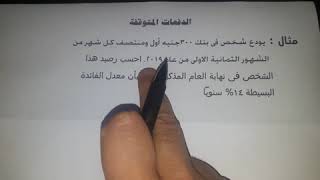 الدفعات المتوقفة
مثال : يودع شخص فى بنك ٣٠٠ جنيه أول ومنتصف كل شهر من
الشهور الثمانية الاولى من عام ٢٠١٩. احسب رصيد هذا
الشخص في نهاية العام المذكور بأن معدل الفائدة
البسيطة ١٤% سنوياً